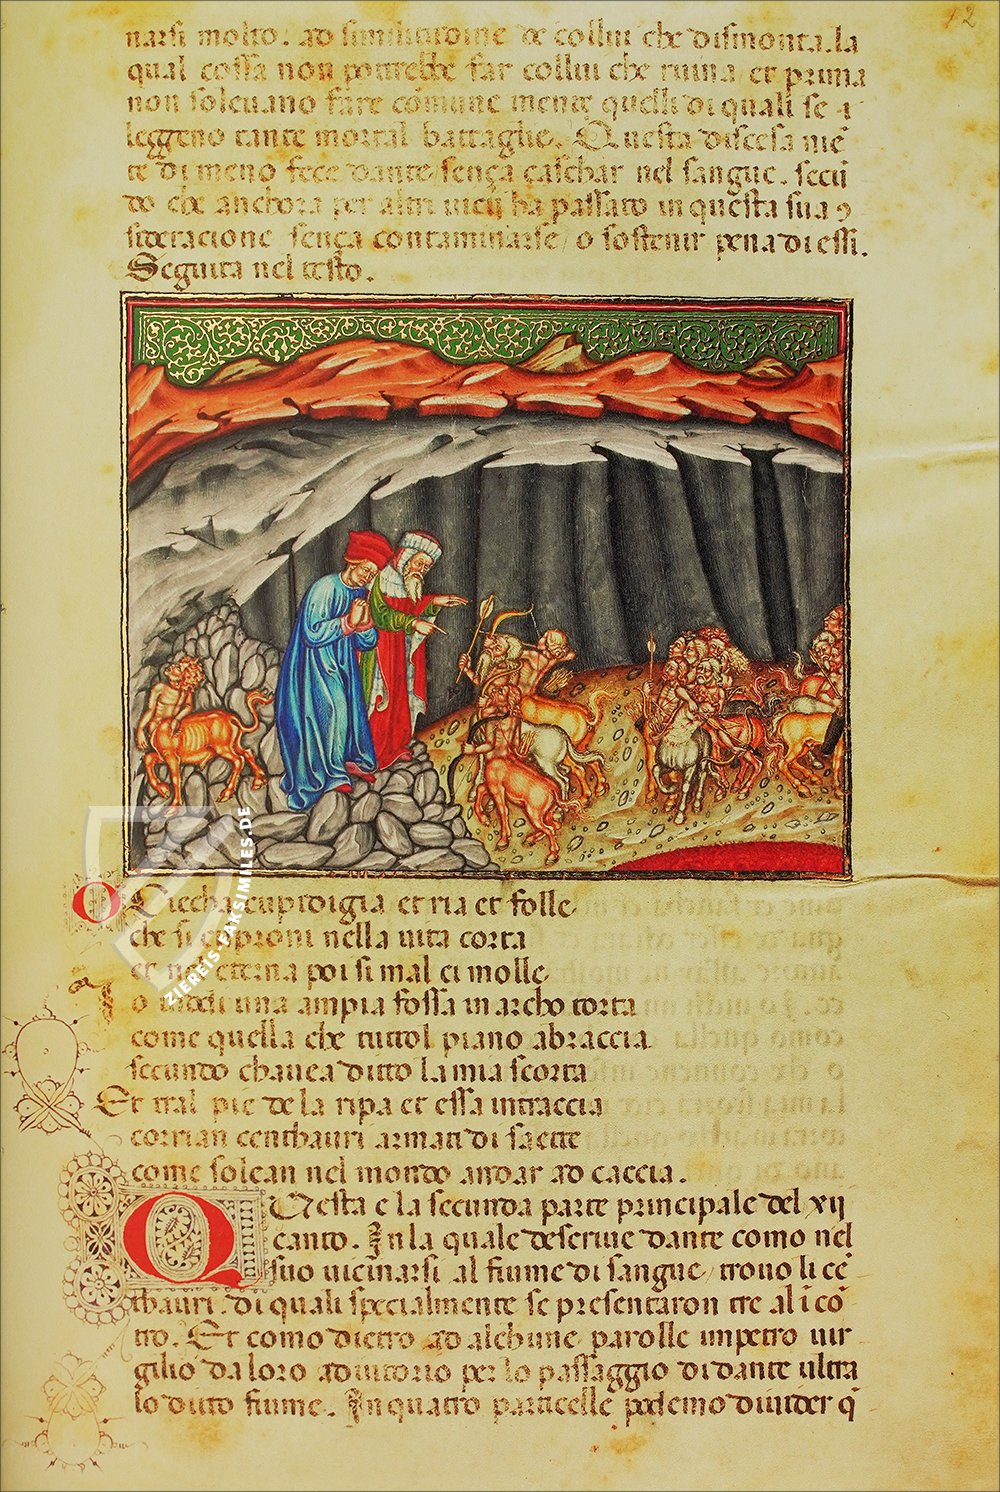 42
narsi molto. ad similitudine de collui che dismonta. la
qual cossa non potrebbe far collui che ruina et prima
non soleuano fare cōmune mente quelli di quali se i
leggeno tante mortal battaglie. Questa discesa niē
te di meno fece dante sença caschar nel sangue. secū
do che anchora per altri uicij ha passato in questa sua ꝯ
sideracione sença contaminarse / o sostenir pena di essi.
Seguita nel testo.
O Ciecha cupidigia et ria et folle
che si ci sproni nella uita corta
et ne eterna poi si mal ci molle
Io uiddi una ampia fossa in archo torta
come quella che tuttol piano abraccia
secundo chauea ditto la mia scorta
Et tral pie de la ripa et essa in traccia
corrian centhauri armati di saette
come solean nel mondo andar ad caccia.
Questa e la secunda parte principale del xij
canto. In la quale descriue dante como nel
suo uicinarsi al fiume di sangue / trouo li cē
thauri. di quali specialmente se presentaron tre al īcō
tro. Et como dietro ad alchune parolle impetro uir
gilio da loro adiutorio per lo passaggio di dante ultra
lo ditto fiume. In quatro particelle podemo diuider q̄
ZIEREIS-FAKSIMILES.DE